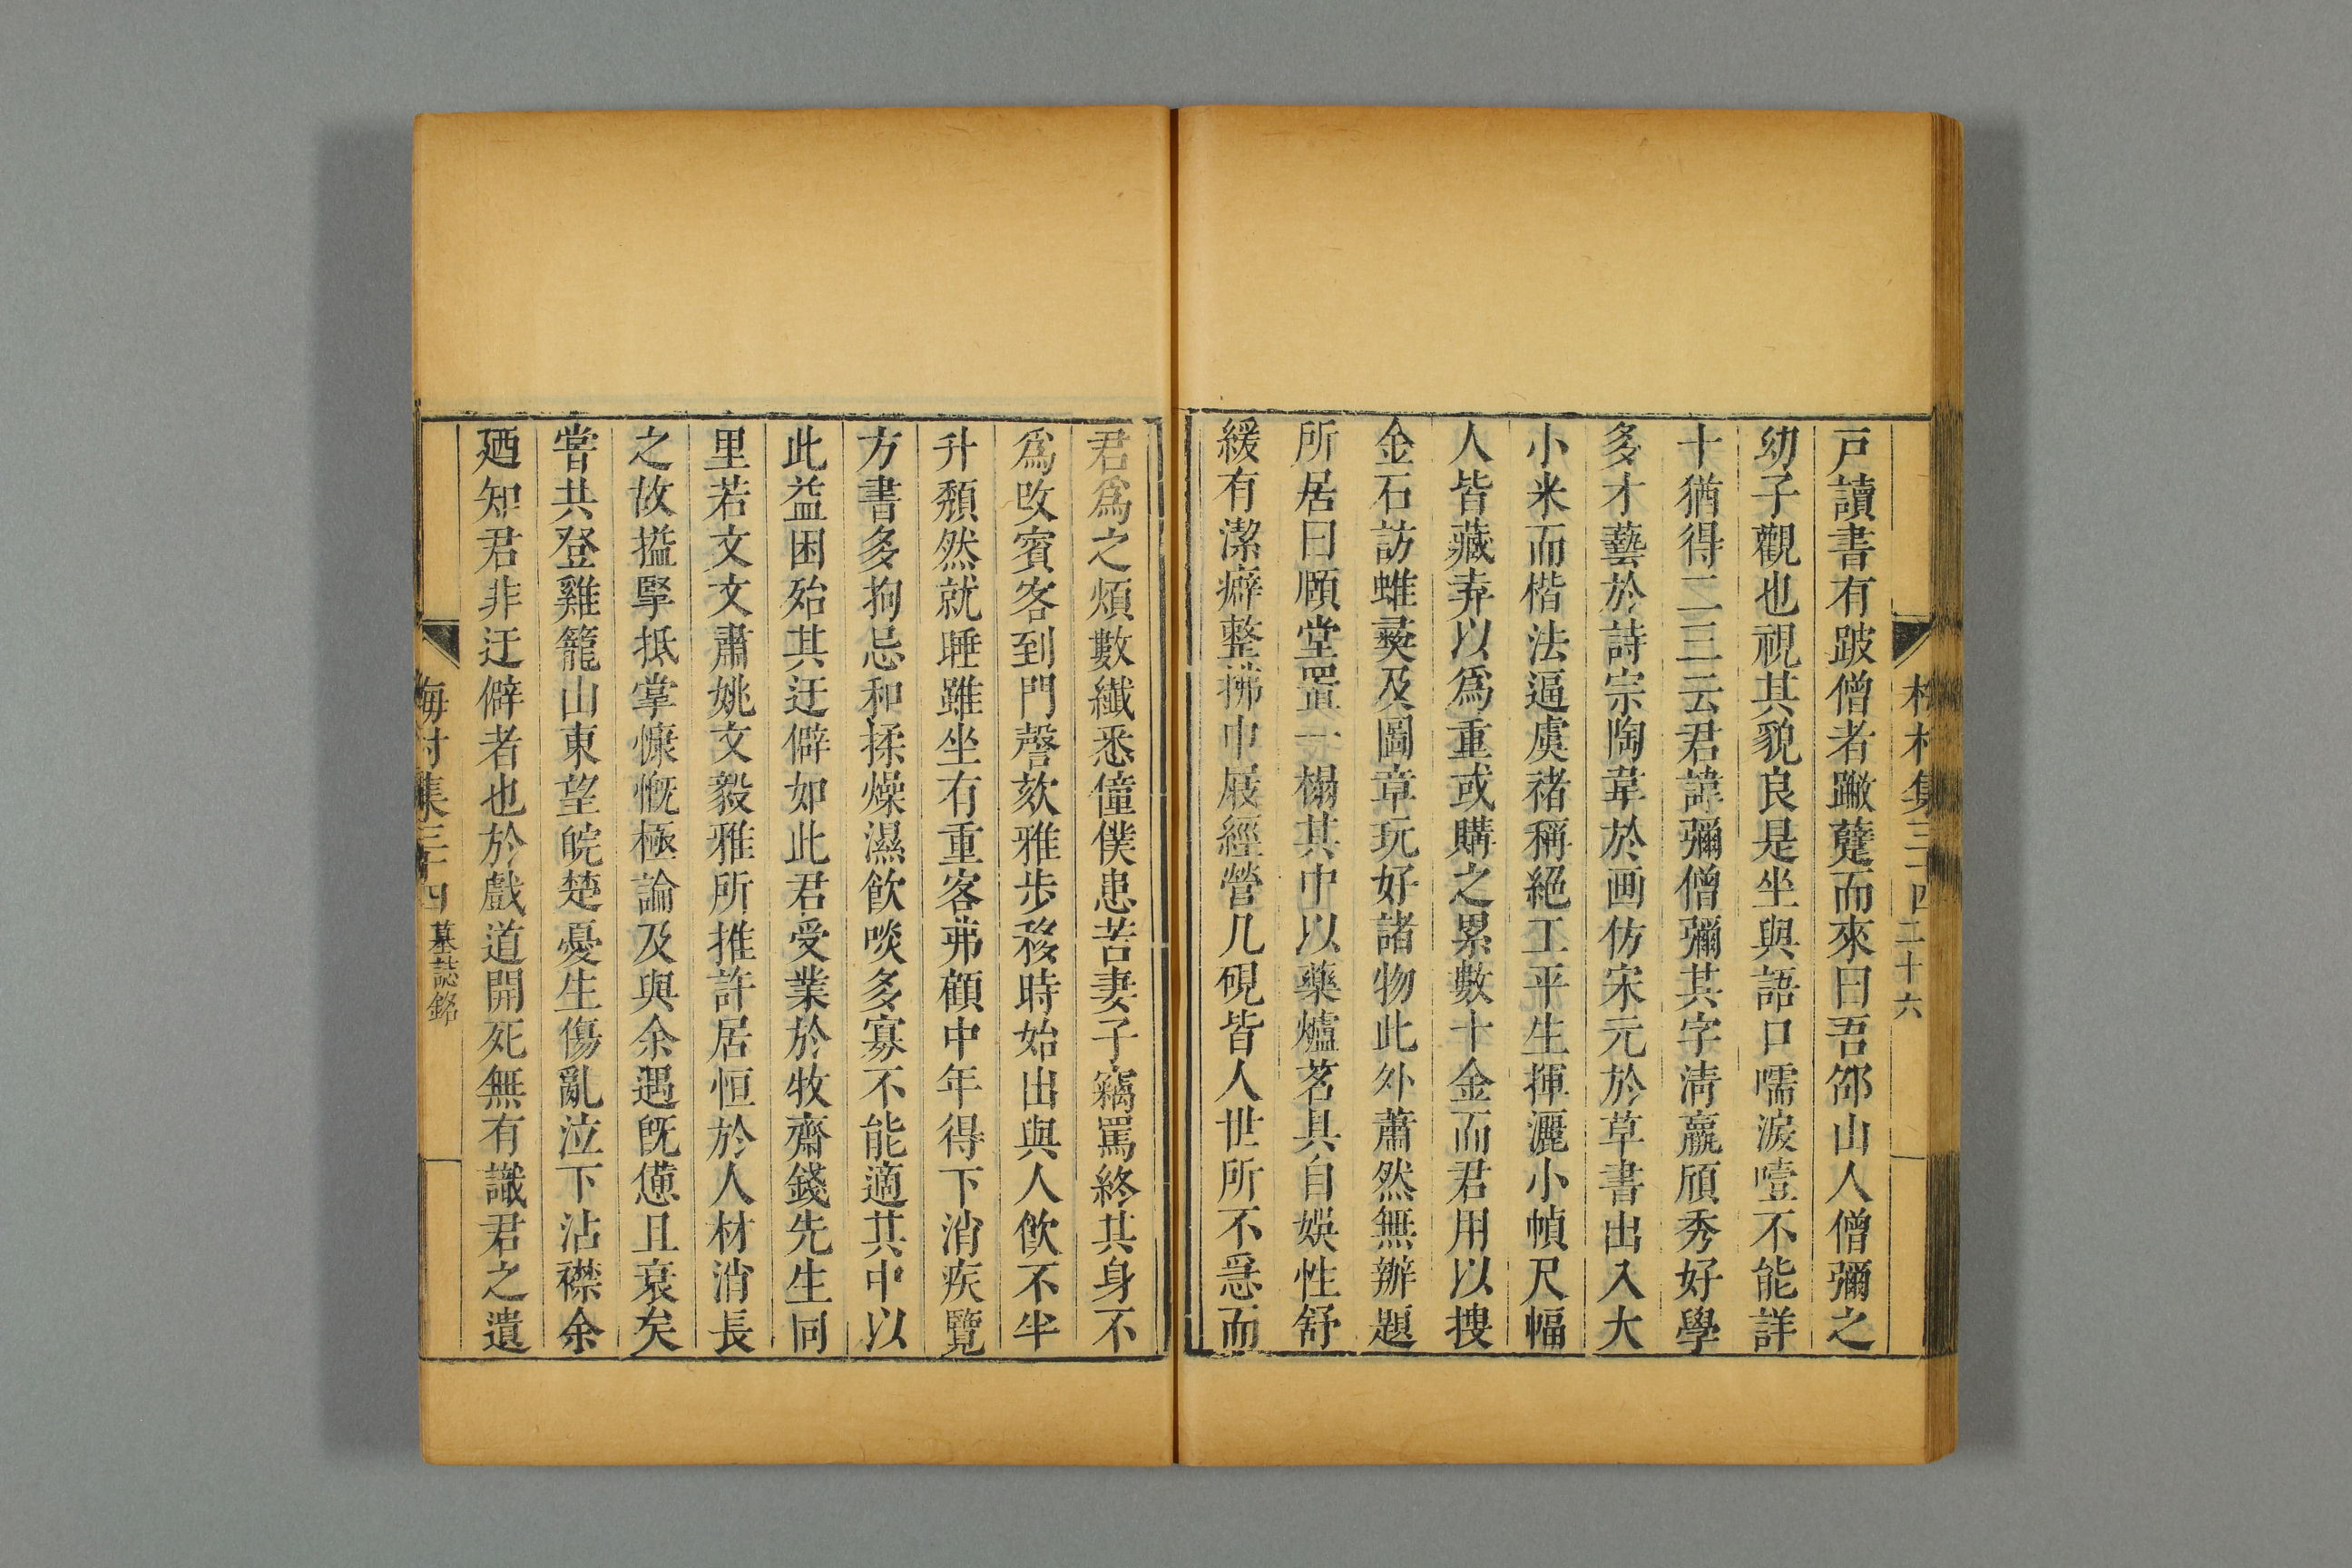 梅村集三十四 二十六
戸讀書有跛僧者蹩躠而來曰吾邵山人僧彌之
幼子觀也視其貌良是坐與語口嚅淚噎不能詳
十猶得二三云君諱彌僧彌其字淸羸頎秀好學
多才藝於詩宗陶韋於画仿宋元於草書出入大
小米而楷法逼虞禇稱絕工平生揮灑小幀尺幅
人皆藏弆以爲重或購之累數十金而君用以捜
金石訪蜼彛及圖章玩好諸物此外蕭然無辦題
所居曰頤堂置一榻其中以藥爐茗具自娛性舒
緩有潔癖整拂巾屐經營几硯皆人世所不急而
君爲之煩數纖悉僮僕患苦妻子竊罵終其身不
爲改賓客到門謦欬雅步移時始出與人飮不半
升頹然就睡雖坐有重客弗顧中年得下消疾覽
方書多拘忌和揉燥濕飮啖多寡不能適其中以
此益困殆其迂僻如此君受業於牧齋錢先生同
里若文文肅姚文毅雅所推許居恒於人材消長
之故搤掔抵掌慷慨極論及與余遇旣憊且衰矣
甞共登雞籠山東望皖楚憂生傷亂泣下沾襟余
廼知君非迂僻者也於戲道開死無有識君之遺
梅村集三十四 墓誌銘